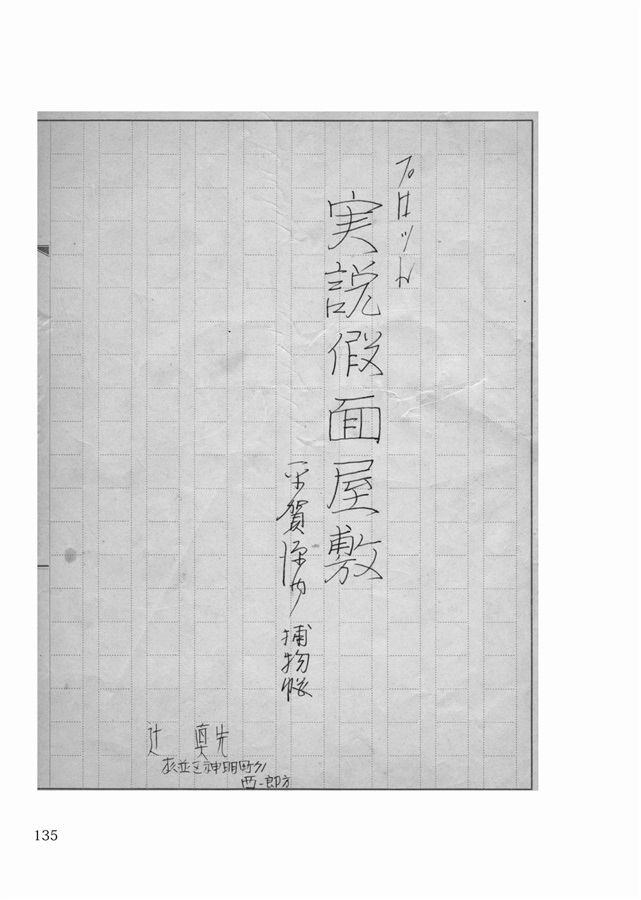 プロット
実説假面屋敷
平賀源内捕物帳
辻 真先
杉並区神明町91
西一郎方
135